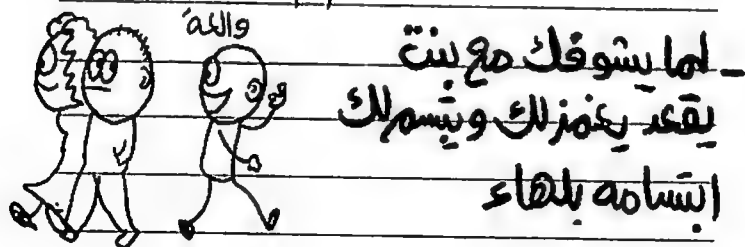 والله
- لما يشوفك مع بنت
يقعد يغمزلك ويتبسملك
ابتسامه بلهاء